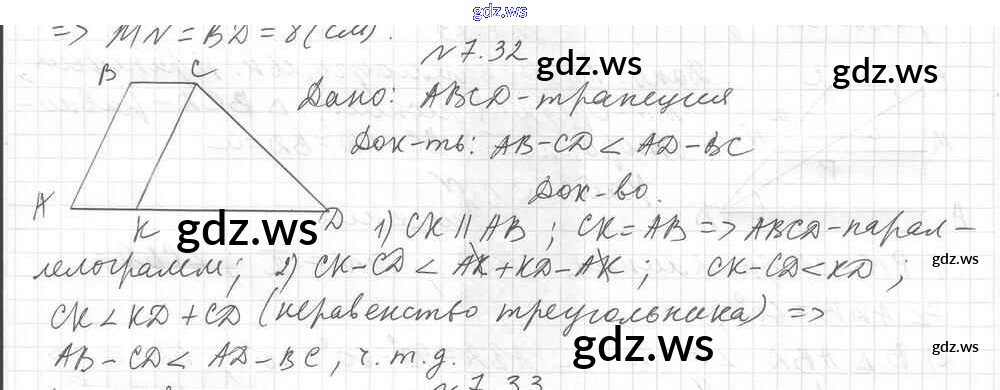 gdz.ws
=> MN = BD = 8 (см).
№ 7.32
gdz.ws
gdz.ws
B C
Дано: ABCD - трапеция
Док-ть: AB - CD < AD - BC
Док-во.
A K D
gdz.ws
1) CK || AB ; CK = AB => ABCD - парал-
лелограмм; 2) CK - CD < AK + KD - AK ; CK - CD < KD ;
gdz.ws
CK < KD + CD (неравенство треугольника) =>
AB - CD < AD - BC , ч.т.д.
gdz.ws
gdz.ws
№ 7.33